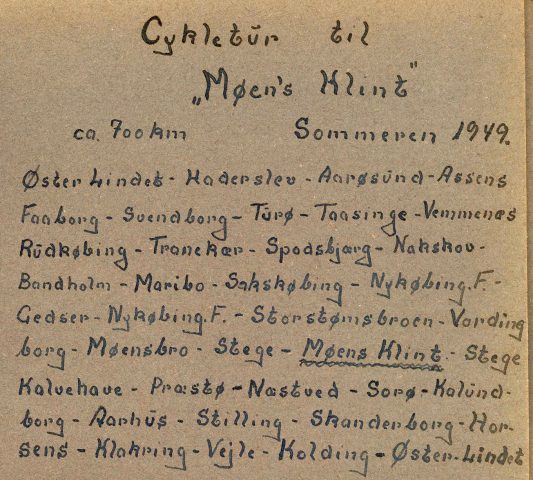 Cykletūr til
„Møen's Klint"
ca. 700 km Sommeren 1949.
Øster Lindet - Haderslev - Aarøsūnd - Assens
Faaborg - Svendborg - Tūrø - Taasinge - Vemmenæs
Rūdkøbing - Tranekær - Spodsbjærg - Nakskov -
Bandholm - Maribo - Sakskøbing - Nykøbing.F. -
Gedser - Nykøbing.F. - Storstømsbroen - Vording
borg - Møensbro - Stege - Møens Klint - Stege
Kalvehave - Præstø - Næstved - Sorø - Kalūnd-
borg - Aarhūs - Stilling - Skanderborg - Hor-
sens - Klakring - Vejle - Kolding - Øster-Lindet